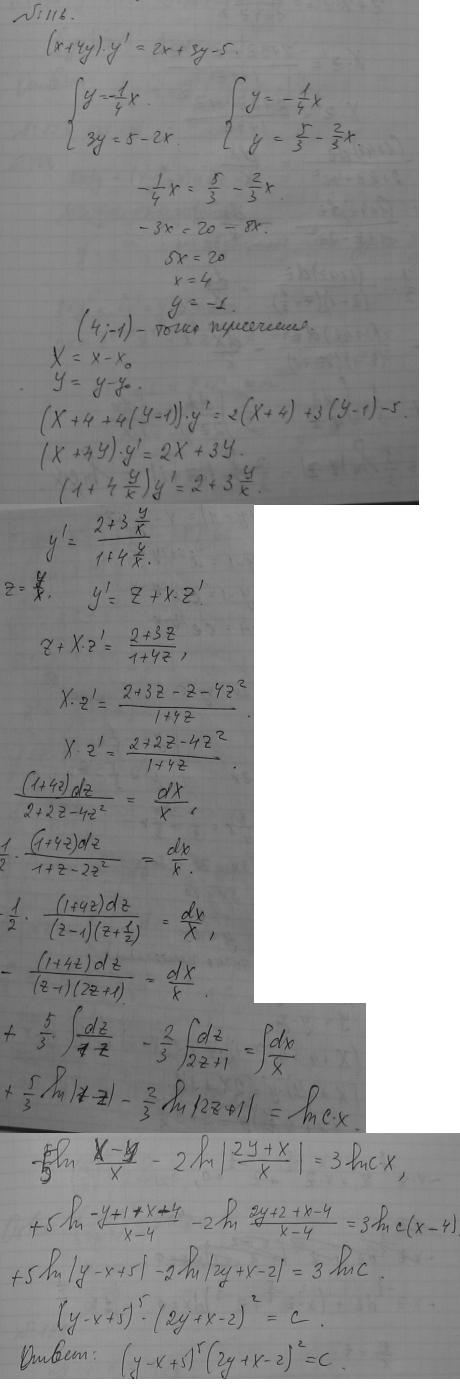 № 116.
(x+4y)·y' = 2x+3y-5.
{ y = -1/4 x. { y = -1/4 x
{ 3y = 5-2x. { y = 5/3 - 2/3 x.
-1/4 x = 5/3 - 2/3 x.
-3x = 20 - 8x.
5x = 20
x = 4
y = -1.
(4;-1) - точка пересечения.
X = x-x₀
Y = y-y₀.
(X+4+4(Y-1))·y' = 2(X+4)+3(Y-1)-5.
(X+4Y)·y' = 2X+3Y.
(1+4 Y/X) y' = 2+3 Y/X.
y' = (2+3 Y/X)/(1+4 Y/X).
z = Y/X. y' = z+X·z'.
z+X·z' = (2+3z)/(1+4z),
X·z' = (2+3z-z-4z²)/(1+4z).
X·z' = (2+2z-4z²)/(1+4z).
(1+4z)dz/(2+2z-4z²) = dX/X,
1/2 · (1+4z)dz/(1+z-2z²) = dx/x.
-1/2 · (1+4z)dz/((z-1)(z+1/2)) = dx/X,
- (1+4z)dz/((z-1)(2z+1)) = dX/X.
+ 5/3 ∫ dz/(1-z) - 2/3 ∫ dz/(2z+1) = ∫ dx/X
+ 5/3 ln|1-z| - 2/3 ln|2z+1| = ln c·x.
5 ln (X-Y)/X - 2 ln |(2Y+X)/X| = 3 ln c·x,
+5 ln (-y+1+x+4)/(x-4) - 2 ln (2y+2+x-4)/(x-4) = 3 ln c(x-4)
+5 ln|y-x+5| - 2 ln|2y+x-2| = 3 ln c.
(y-x+5)⁵·(2y+x-2)² = c.
Ответ: (y-x+5)⁵(2y+x-2)² = c.